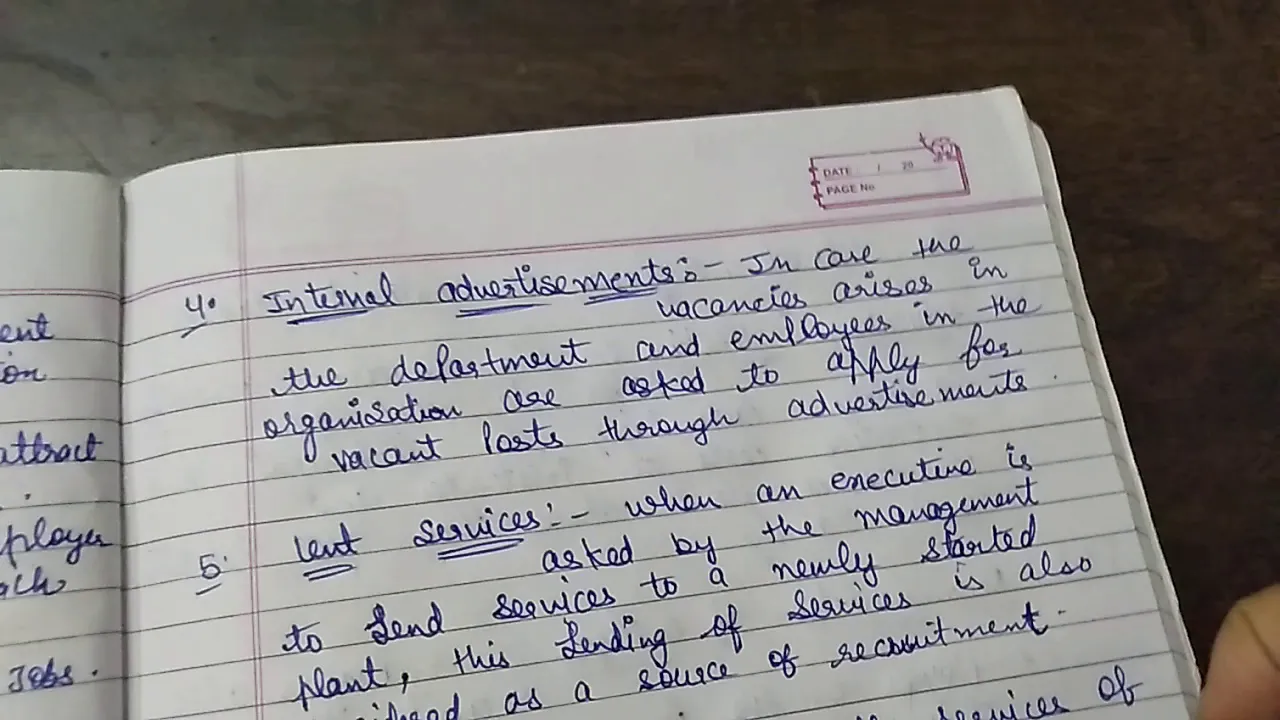 DATE / 20
PAGE No
ent
on
attract
ployer
ach
Jobs.
4. Internal advertisements:- In case the
vacancies arises in
the department and employees in the
organisation are asked to apply for
vacant posts through advertisements.
5. Lent Services:- when an executive is
asked by the management
to lend services to a newly started
plant, this lending of services is also
as a source of recruitment.
services of